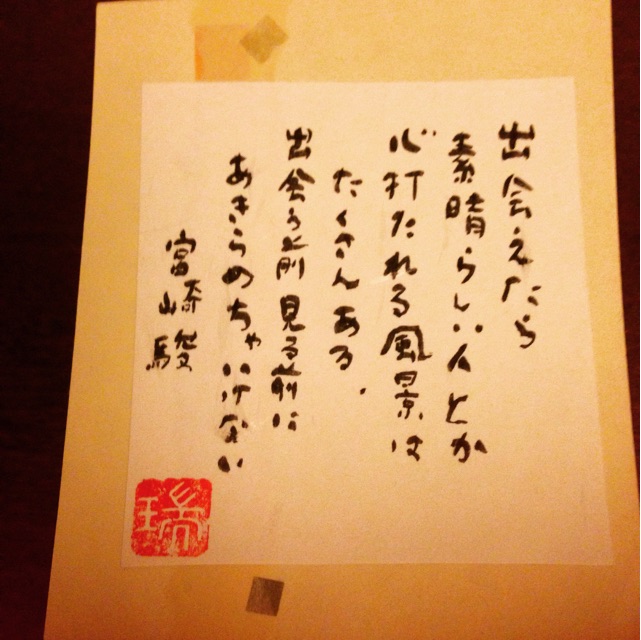 出会えたら
素晴らしい人とか
心打たれる風景は
たくさんある.
出会う前見る前に
あきらめちゃいけない
宮崎駿
瑞